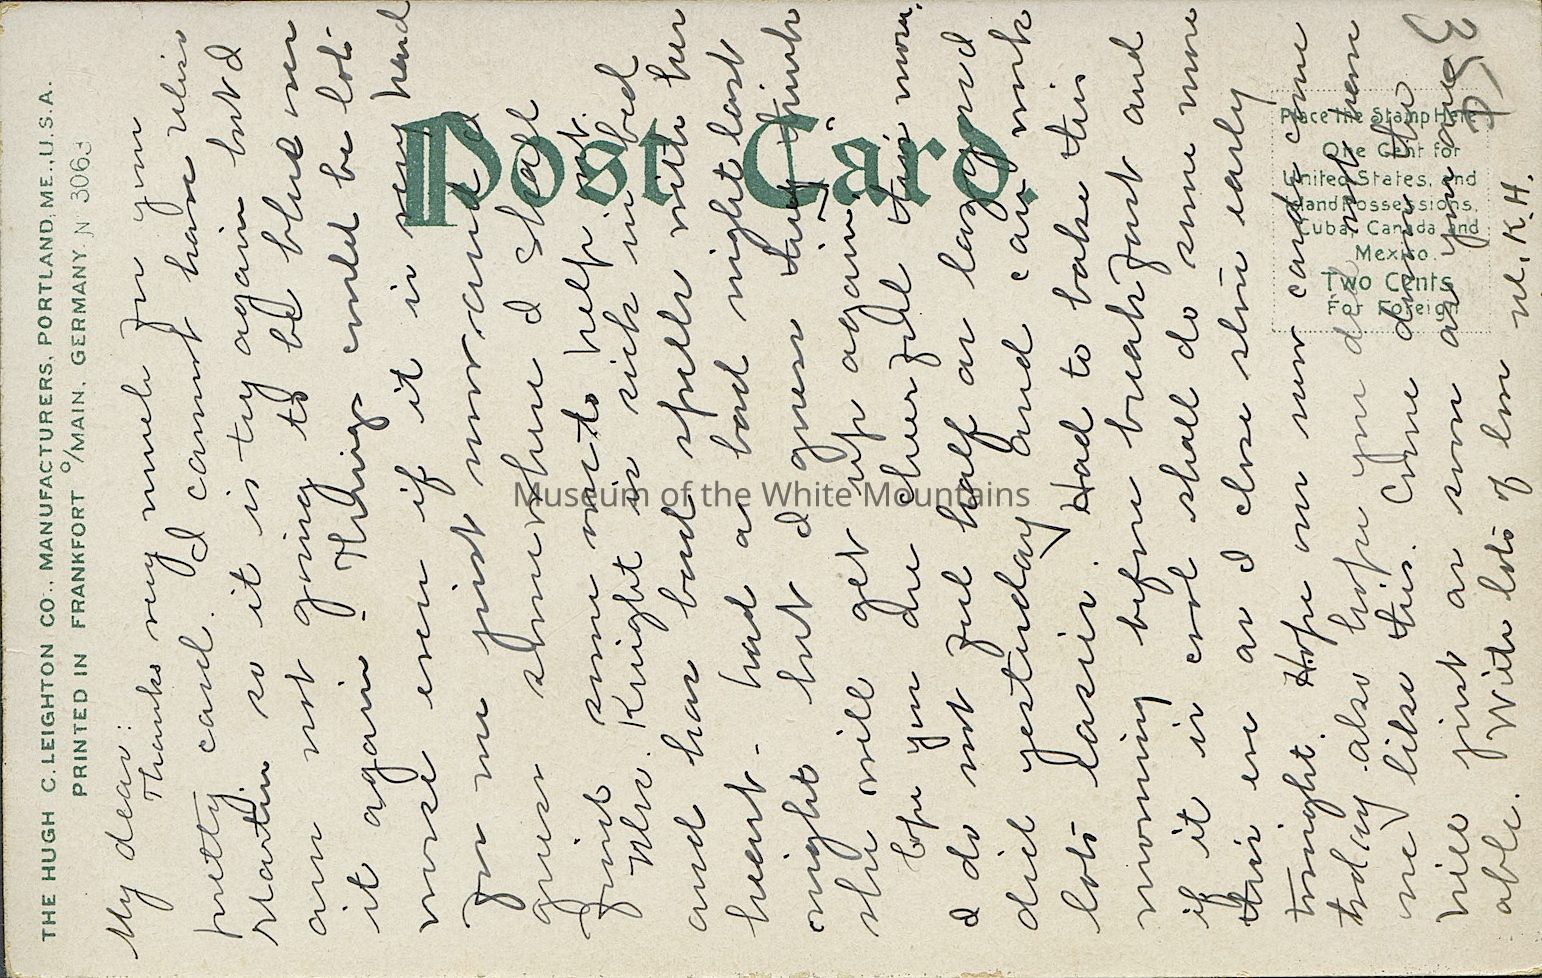 THE HUGH C. LEIGHTON CO., MANUFACTURERS, PORTLAND, ME., U.S.A.
PRINTED IN FRANKFORT o/MAIN, GERMANY. N 3063
Post Card.
Place the Stamp Here
One Cent for
United States, and
Island Possessions,
Cuba, Canada and
Mexico.
Two Cents
For Foreign
35
My dear:
Thanks very much for your
pretty card. I cannot have
Martin so it is try again but I
am not going to be blue over
it again - Things could be lots
worse even if it is very hard
for me just now and I
guess somewhere I shall
find some one to help out.
Mrs. Knight is sick in bed
and has bad spells with her
heart - had a bad night last
night but I guess they think
she will get up again.
Hope you are cheerful this morn.
I do not feel half as lazy as I
did yesterday and can work
lots easier. Had to bake this
morning before breakfast and
if it is cool shall do some more
this eve as I close store early
tonight. Hope one new card came
today also hope you did not have
one like this. Come down the
hill just as soon as you are
able. With lots of love N.K.H.
Museum of the White Mountains